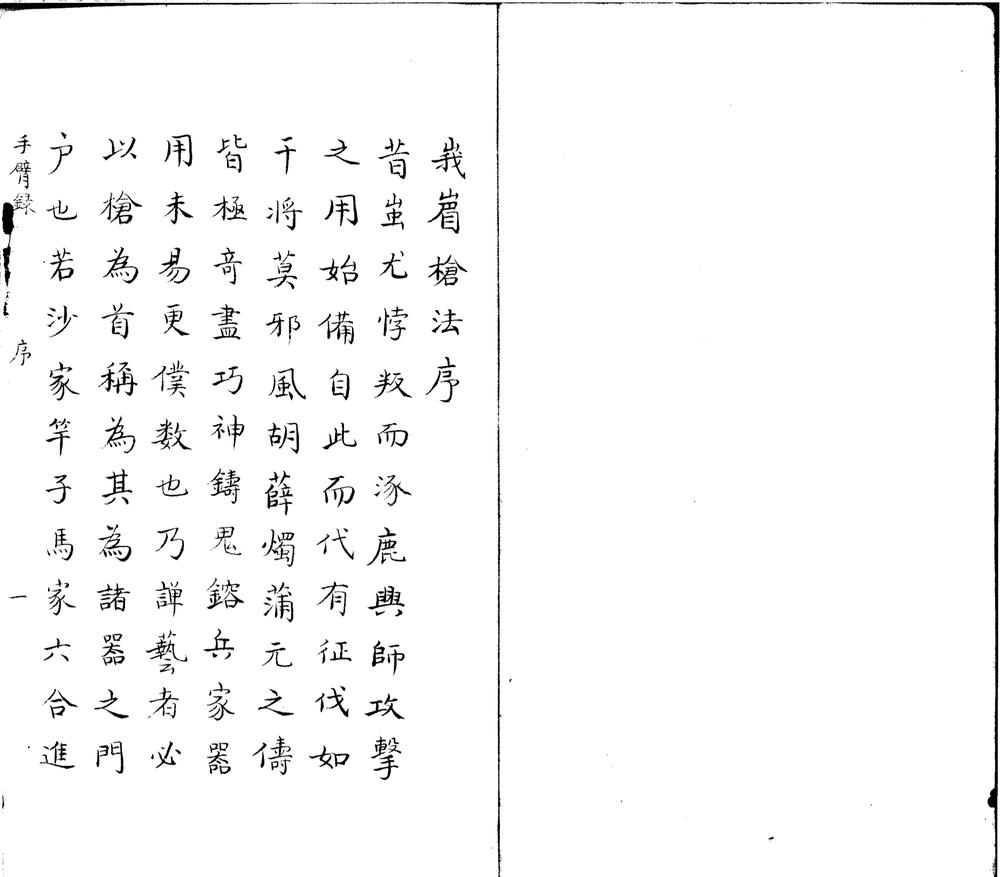 峩嵋槍法序
昔蚩尤悖叛而涿鹿興師攻擊
之用始備自此而代有征伐如
干将莫邪風胡薛燭蒲元之儔
皆極奇盡巧神鑄鬼鎔兵家器
用未易更僕数也乃譂藝者必
以槍為首稱為其為諸器之門
户也若沙家竿子馬家六合進
手臂録 序 一